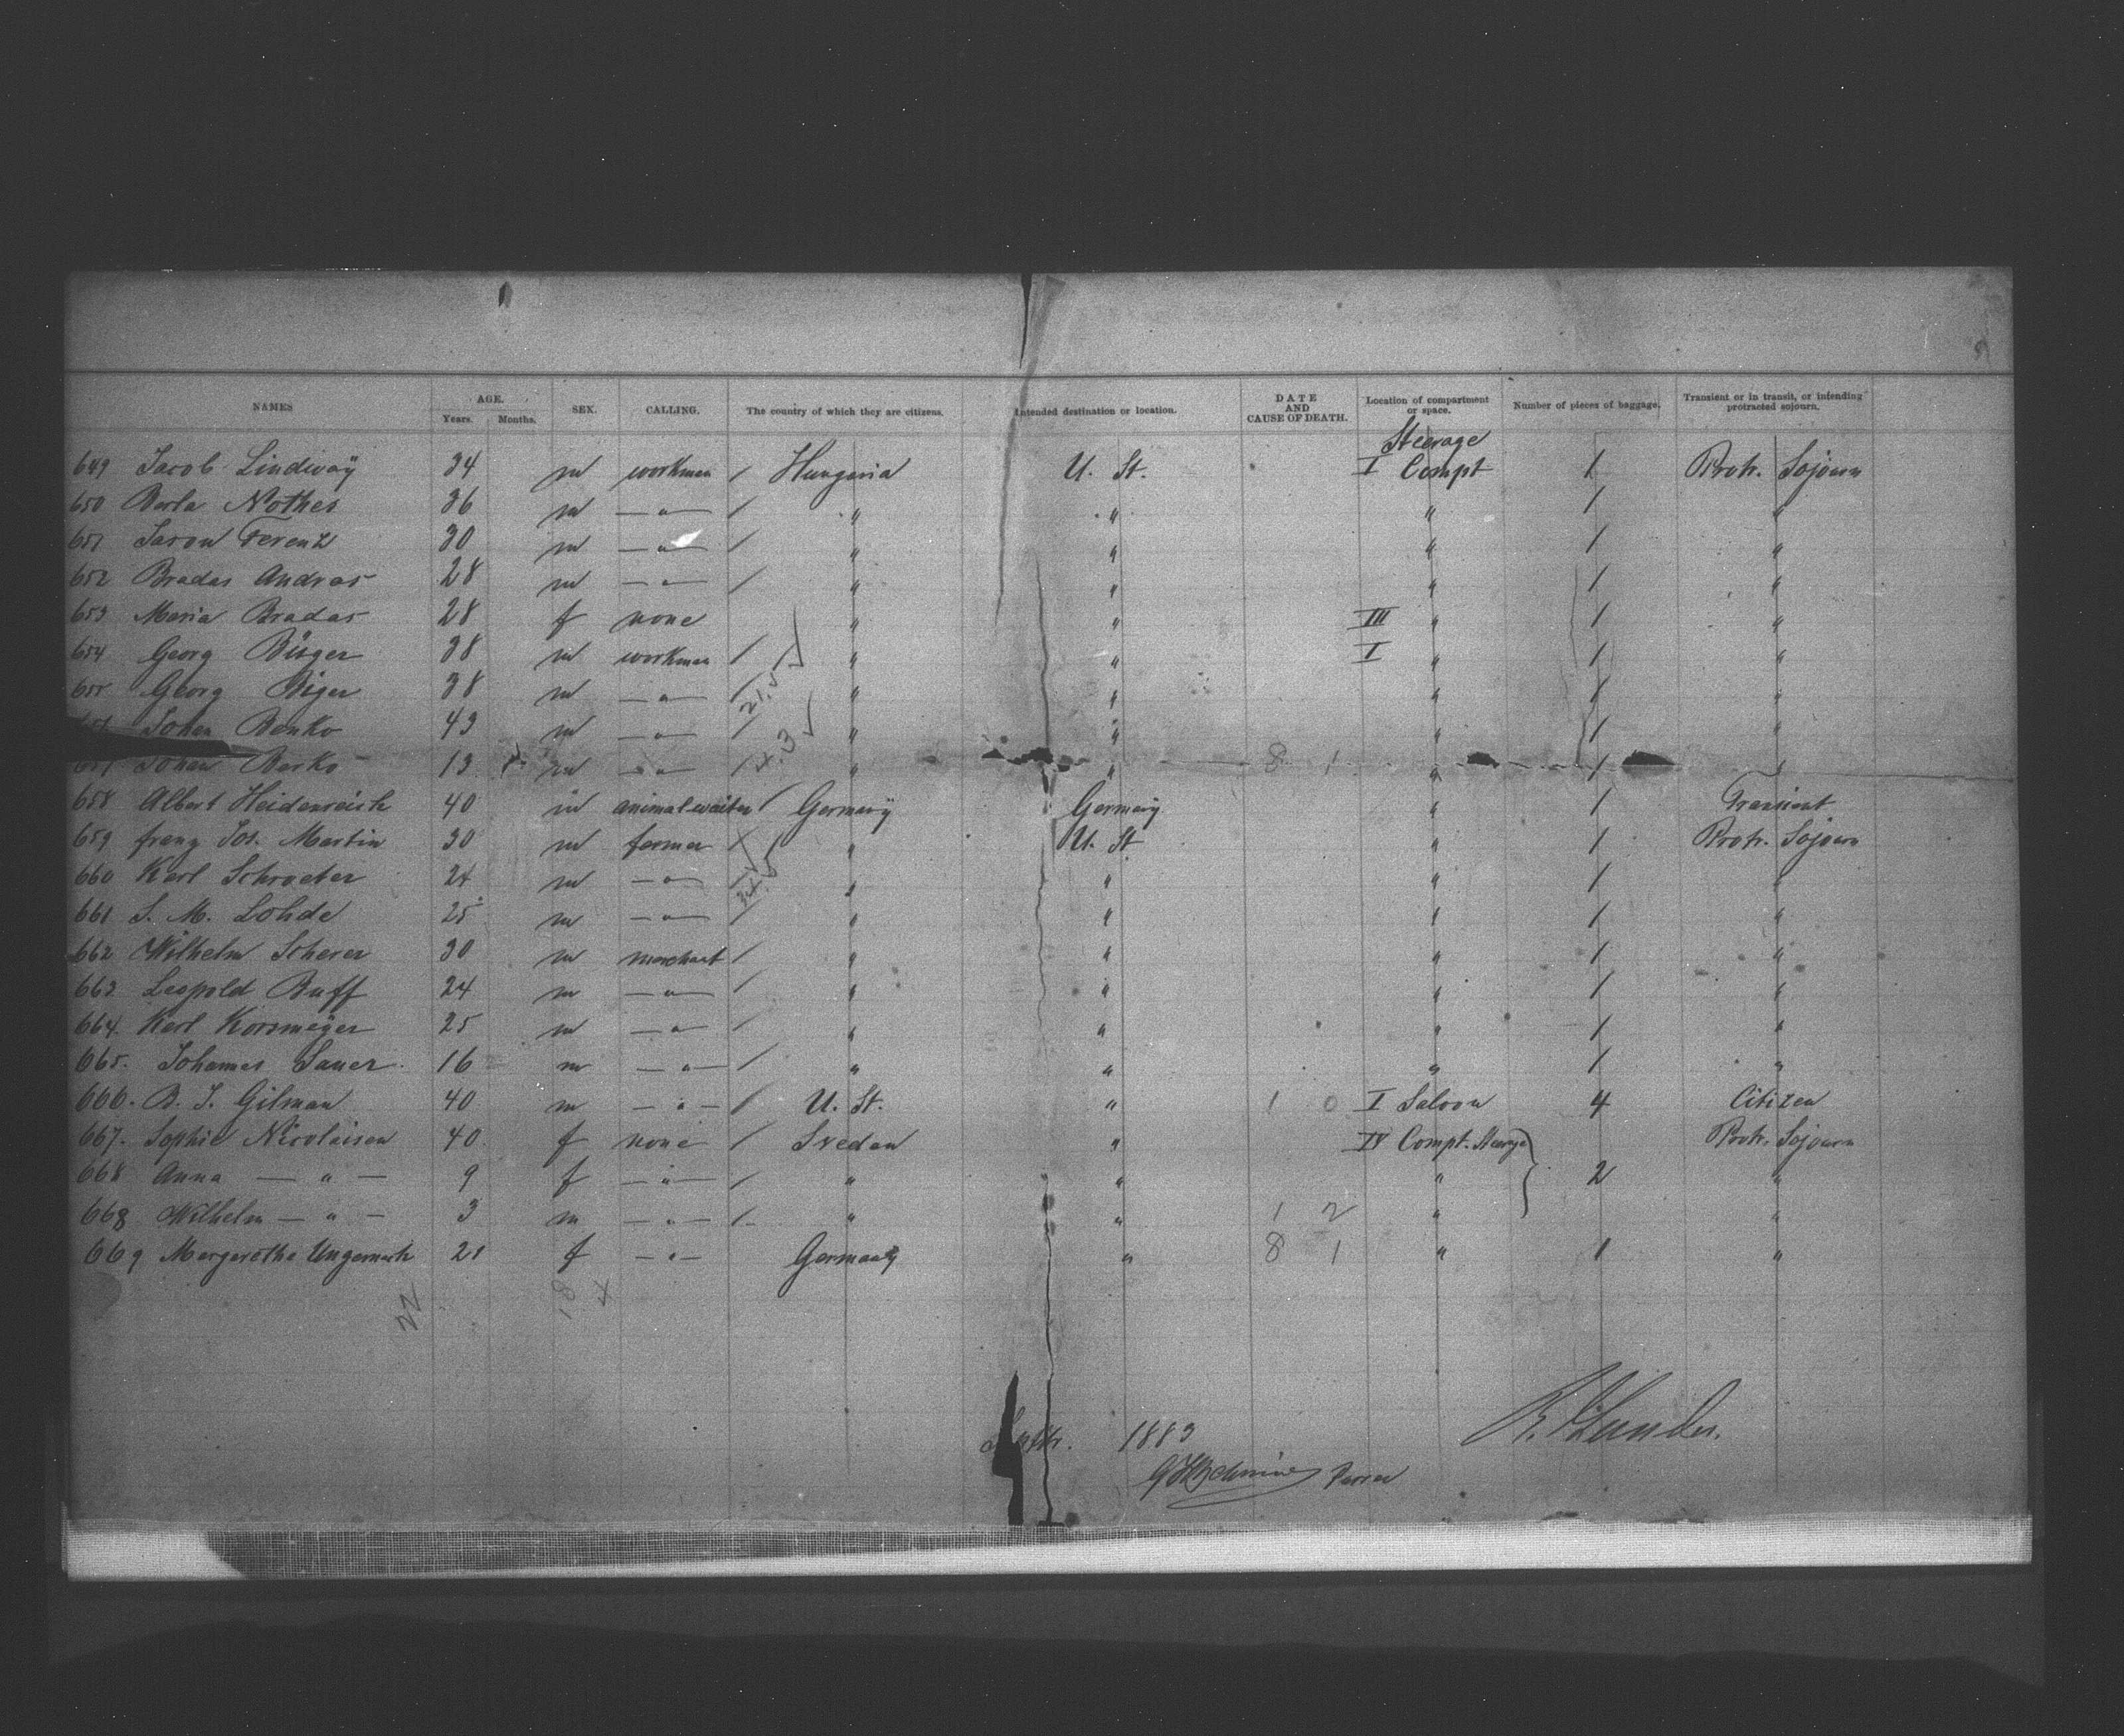 NAMES AGE. Years. Months. SEX. CALLING. The country of which they are citizens. Intended destination or location. DATE AND CAUSE OF DEATH. Location of compartment or space. Number of pieces of baggage. Transient or in transit, or intending protracted sojourn.
Steerage
649 Jacob Lindivaÿ 34 m workmen / Hungaria U. St. I Compt 1 Protr. Sojourn
650 Berta Nothes 36 m — " — / " " " 1 "
651 Jaron Ferenz 30 m — " — / " " " 1 "
652 Bradas Andras 28 m — " — / " " " 1 "
653 Maria Bradas 28 f none " " III " 1 "
654 Georg Bisger 38 m workmen / " " I " 1 "
655 Georg Biger 38 m — " — / " " " 1 "
Johan Benko 43 m — " — / " " " 1 "
657 Johan Berko 13 m — " — / " " 8 1 " 1 "
658 Albert Heidenreich 40 m animal waiter / Germanÿ Germany " 1 Transient
659 franz Jos. Martin 30 m farmer " U. St " 1 Protr. Sojourn
660 Karl Schroeter 24 m — " — / " " " 1 "
661 S. M. Lohde 25 m — " — / " " " 1 "
662 Wilhelm Scherer 30 m merchant / " " " 1 "
663 Leopold Buff 24 m — " — / " " " 1 "
664. Karl Korsmeÿer 25 m — " — / " " " 1 "
665. Johannes Sauer 16 m — " — / " " " 1 "
666. B. J. Gilman 40 m — " — / U. St. " 1 0 I Saloon 4 Citizen
667. Sophie Nicolaisen 40 f none / Sveden " IV Compt. Steerge Protr. Sojourn
668 Anna — " — 9 f — " — / " " " 2 "
668 Wilhelm — " — 3 m — " — / " " 1 2 " "
669 Margarethe Ungemach 21 f — " — Germany " 8 1 " 1 "
22 18 4
Septr. 1883